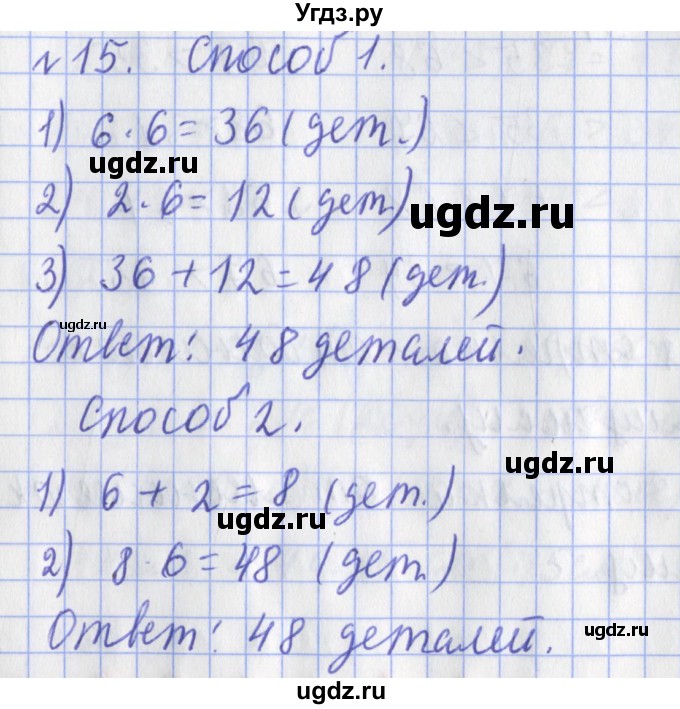 Угдз.ру
№15. Способ 1.
1) 6·6=36(дет.)
ugdz.ru
2) 2·6=12(дет.)
ugdz.ru
3) 36+12=48(дет.)
ugdz.ru
Ответ: 48 деталей.
Способ 2.
ugdz.ru
1) 6+2=8(дет.)
ugdz.ru
2) 8·6=48 (дет.)
Ответ: 48 деталей.
ugdz.ru
ugdz.ru